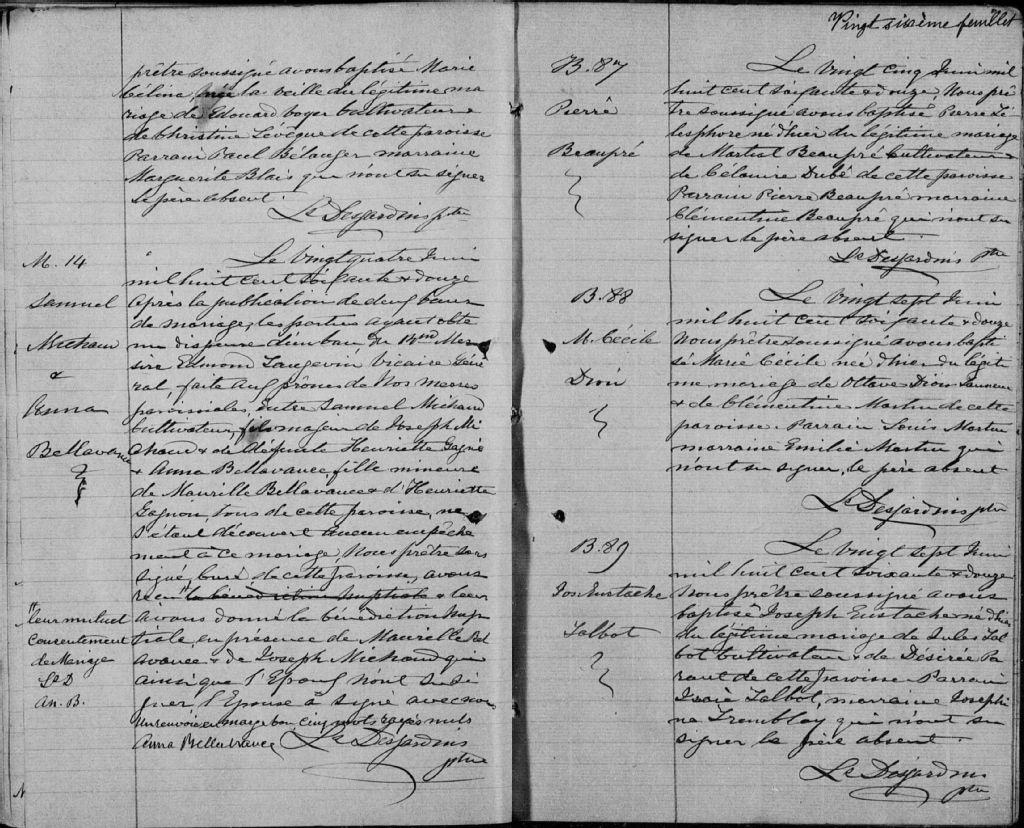 prêtre soussigné avons baptisé Marie
Célina, née la veille du légitime ma
riage de Edouard boyer cultivateur &
de Christine Lévêque de cette paroisse
Parrain Paul Bélanger marraine
Marguerite Blais qui n'ont su signer
le père absent.
Ls Desjardins ptre
M. 14
Samuel
Michaud
&
Anna
Bellavance
Le Vingt quatre Juin
mil huit cent soixante & douze
Après la publication de deux bans
de mariage, les parties ayant obte
nu dispense d'un ban de Mes
sire Edmond Langevin Vicaire Géné
ral, faite aux prônes de Nos messes
paroissiales, entre Samuel Michaud
Cultivateur, fils majeur de Joseph Mi
chaud & de défunte Henriette Gagné
& Anna Bellavance, fille mineure
de Maurille Bellavance & d'Henriette
Gagnon, tous de cette paroisse, ne
s'étant découvert aucun empêche
ment à ce mariage, Nous prêtre sous
signé, Curé de cette paroisse, avons
reçu " la bénédiction nuptiale & leur
avons donné la bénédiction nup
tiale, en présence de Maurille Bel
lavance & de Joseph Michaud qui
ainsi que l'Epoux n'ont su si
gner, l'Epouse a signé avec nous
Un renvoi en marge bon cinq mots rayés nuls
Anna Bellavance Ls Desjardins
ptre
" leur mutuel
consentement
de Mariage
Ls D
An. B.
Vingt sixième feuillet
B. 87
Pierre
Beaupré
Le Vingt cinq Juin mil
huit cent soixante & douze, Nous prê
tre soussigné avons baptisé Pierre Té
lesphore né d'hier du légitime mariage
de Martial Beaupré Cultivateur &
de Célanire Dubé de cette paroisse
Parrain Pierre Beaupré marraine
Clémentine Beaupré qui n'ont su
signer le père absent.
Ls Desjardins ptre
B. 88
M. Cécile
Dion
Le Vingt sept Juin
mil huit cent soixante & douze
Nous prêtre soussigné avons bapti
sé Marie Cécile née d'hier du légit
ime mariage de Octave Dion Tanneur
& de Clémentine Martin de cette
paroisse. Parrain Louis Martin
marraine Emilie Martin qui
n'ont su signer, le père absent
Ls Desjardins ptre
B. 89
Jos Eustache
Talbot
Le Vingt sept Juin
mil huit cent soixante & douze
Nous prêtre soussigné avons
baptisé Joseph Eustache né d'hier
du légitime mariage de Jules Tal
bot Cultivateur & de Désirée Pa
rant de cette paroisse Parrain
Isaïe Talbot, marraine Josephi
ne Tremblay qui n'ont su
signer le père absent.
Ls Desjardins
ptre